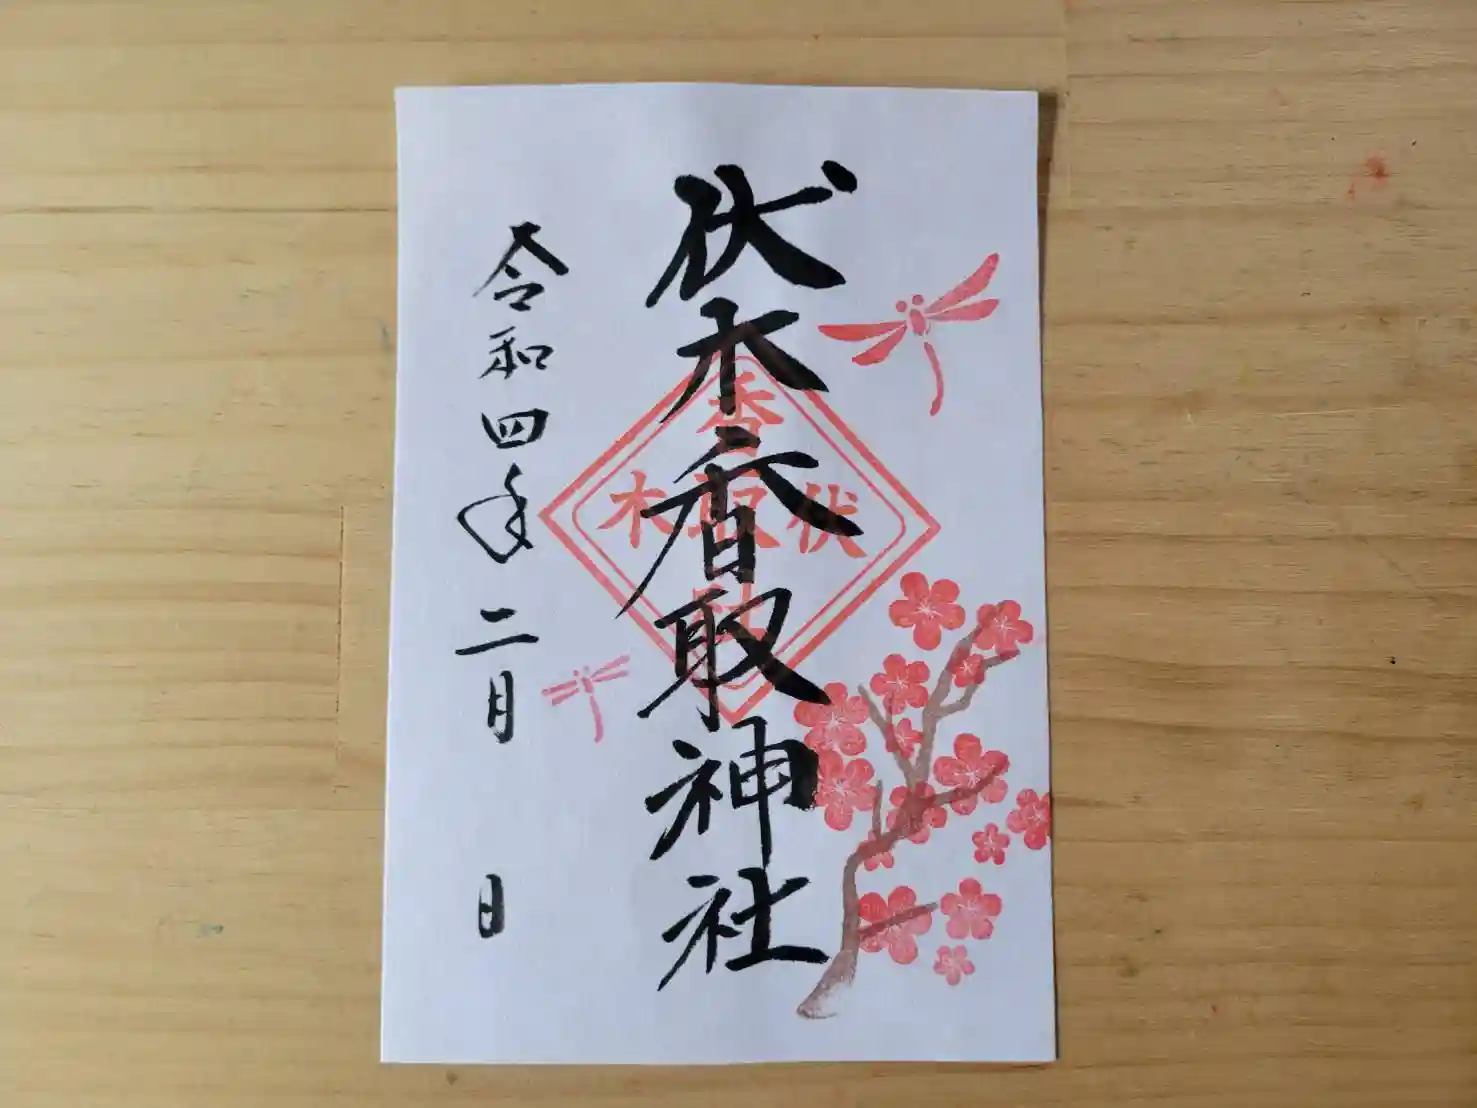 伏木香取神社
香
伏取木
令和四年二月 日